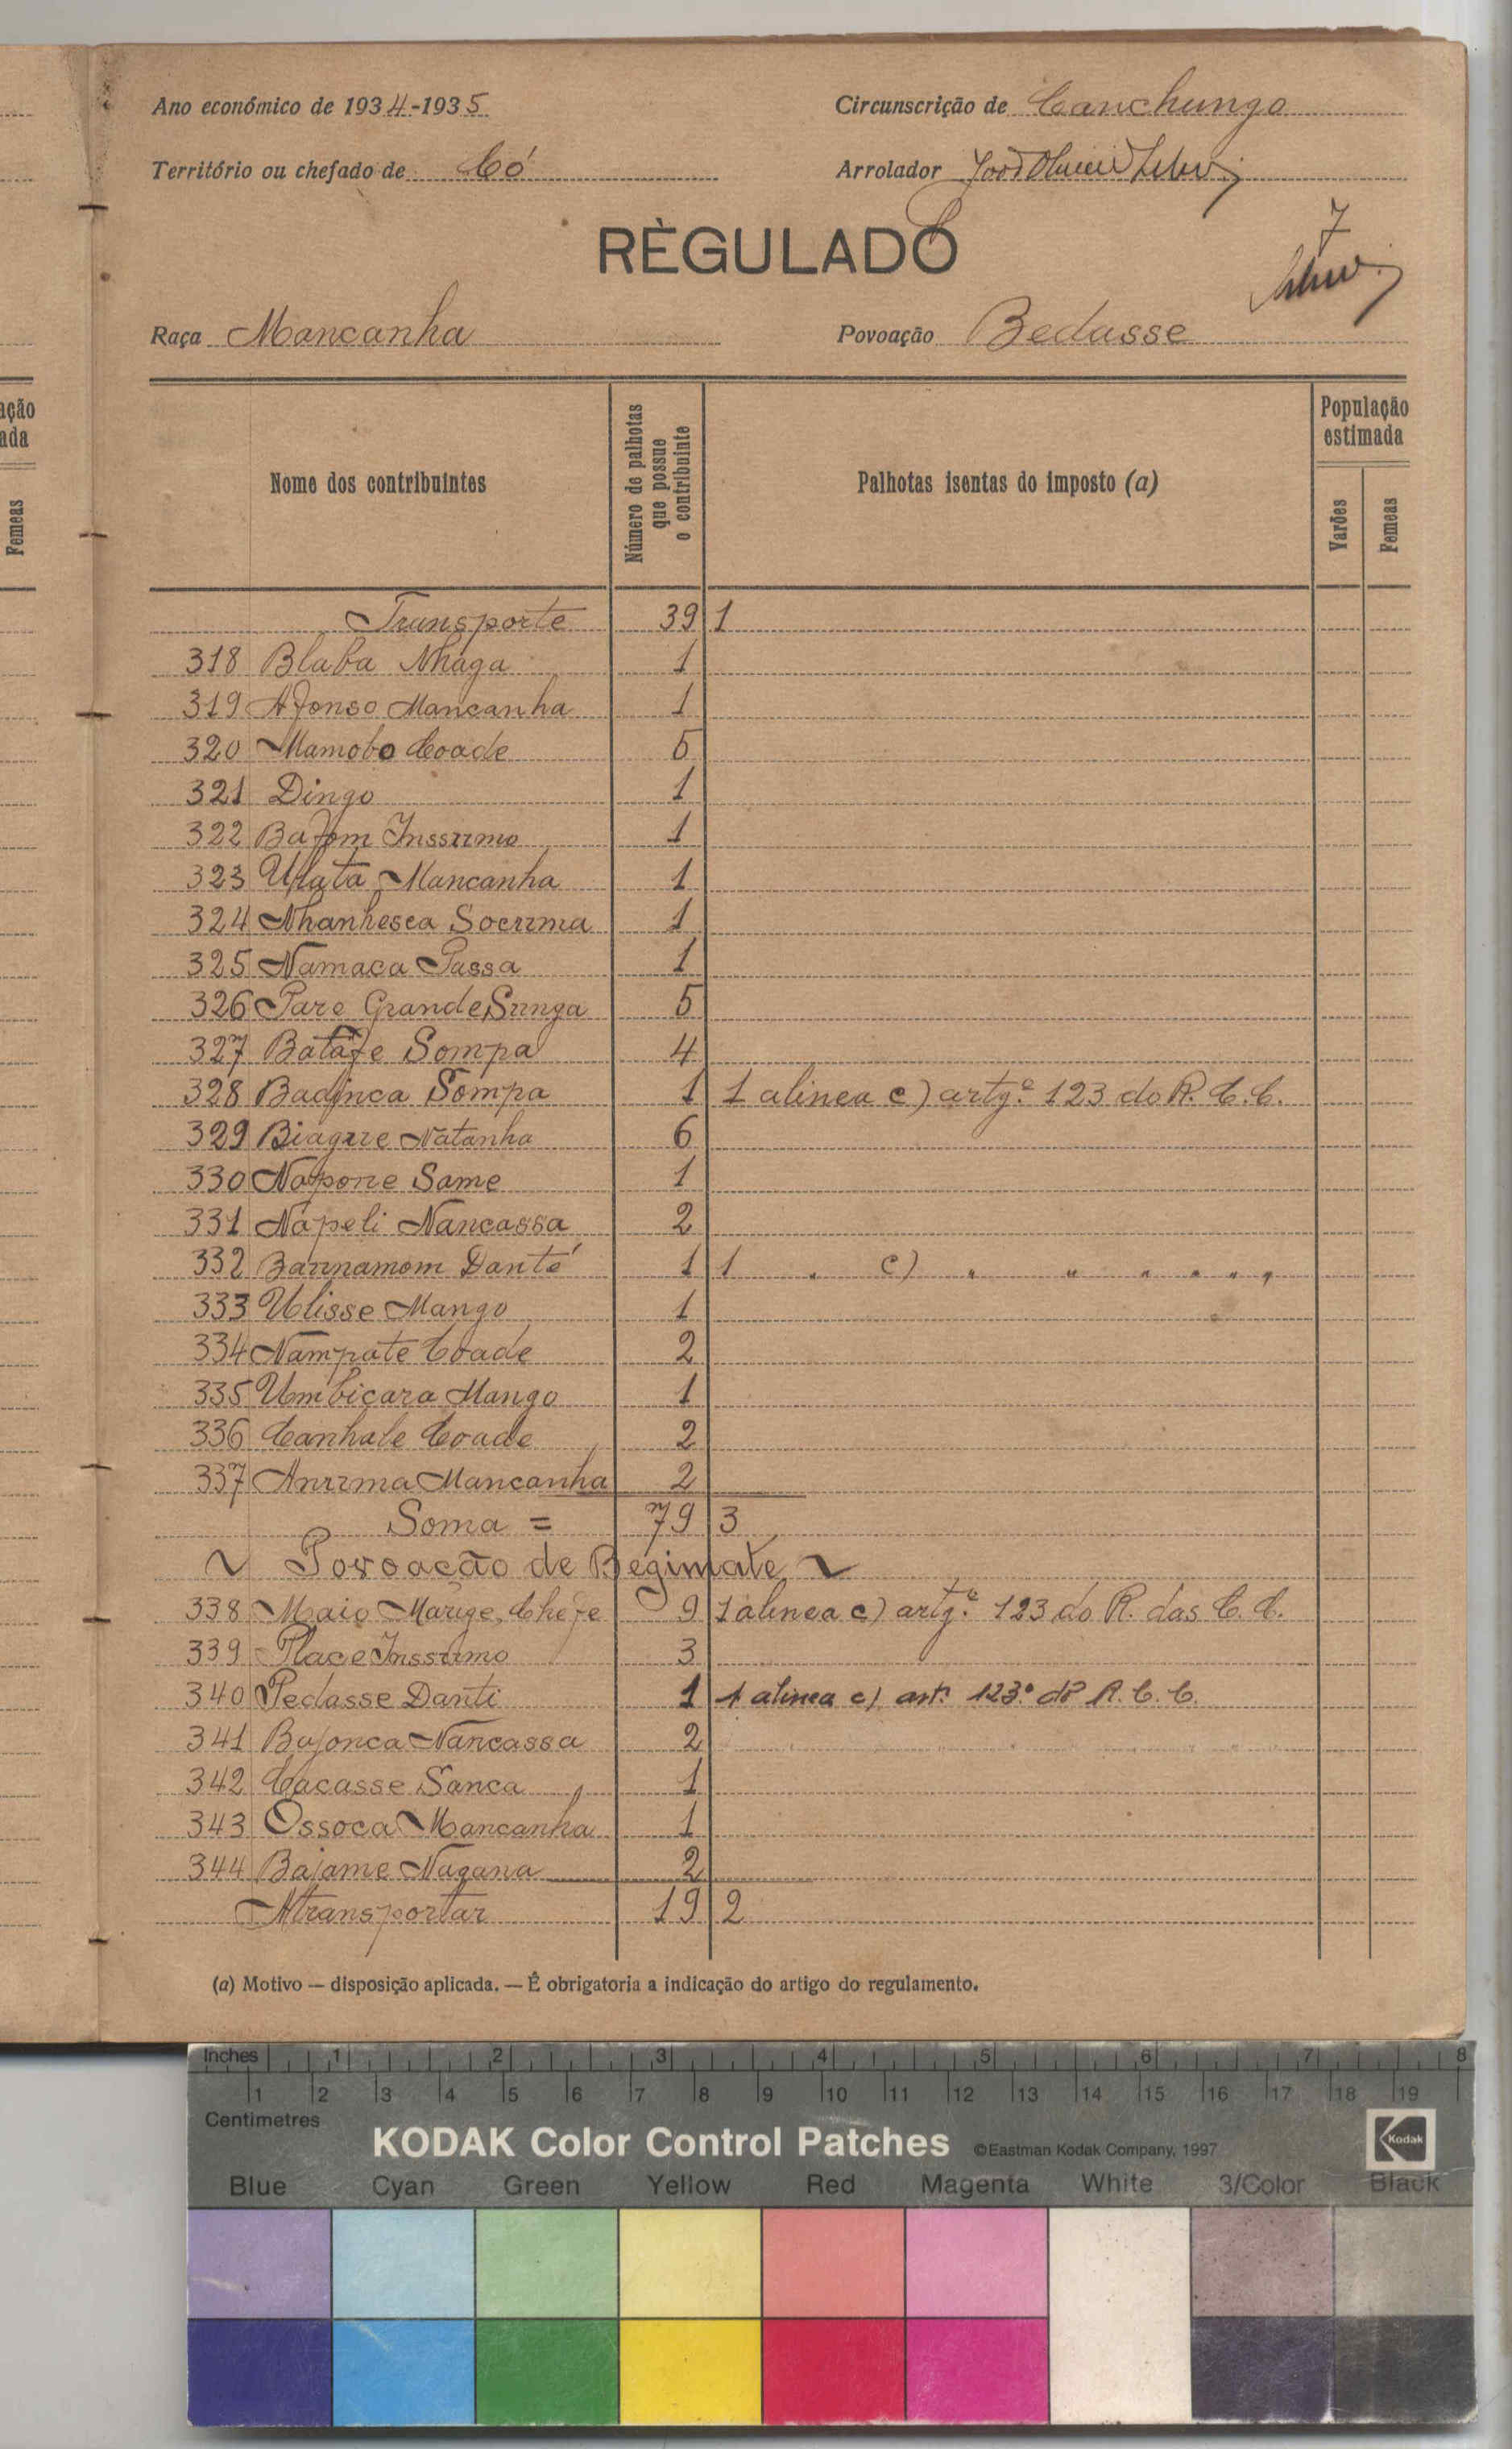 Ano económico de 1934-1935 Circunscrição de Canchungo
Território ou chefado de Có Arrolador
RÈGULADO
7
Raça Mancanha Povoação Bedasse
ação
ada
Femeas
Nome dos contribuintes
Número de palhotas que possue o contribuinte
Palhotas isentas do imposto (a)
População estimada
Varões
Femeas
Transporte 39 1
318 Blaba Nhaga 1
319 Afonso Mancanha 1
320 Mamobo Coade 5
321 Dingo 1
322 1
323 Mancanha 1
324 Nhanhesca 1
325 Namaca Passa 1
326 Pare Grande Sunga 5
327 Batafe Sompa 4
328 Badinca Sompa 1 1 alinea c) artgº 123 do R. C. C.
329 Natanha 6
330 Napone Same 1
331 Napeli Nancassa 2
332 Danté 1 1 " c) " " " " " "
333 Ulisse Mango 1
334 Nampate Coade 2
335 Umbicara Mango 1
336 Canhale Coade 2
337 Mancanha 2
Soma = 79 3
~ Povoacão de Begimate ~
338 Maio Marige, Chefe 9 1 alinea c) artgº 123 do R. das C. C.
339 Place 3
340 Pedasse Danti 1 1 alinea c) artº 123º do R. C. C.
341 Bajonca Nancassa 2
342 Cacasse Sanca 1
343 Ossoca Mancanha 1
344 Bajame Nagana 2
Atransportar 19 2
(a) Motivo — disposição aplicada. — É obrigatoria a indicação do artigo do regulamento.
Inches 1 2 3 4 5 6 7 8
1 2 3 4 5 6 7 8 9 10 11 12 13 14 15 16 17 18 19
Centimetres
KODAK Color Control Patches ©Eastman Kodak Company, 1997 Kodak
Blue Cyan Green Yellow Red Magenta White 3/Color Black